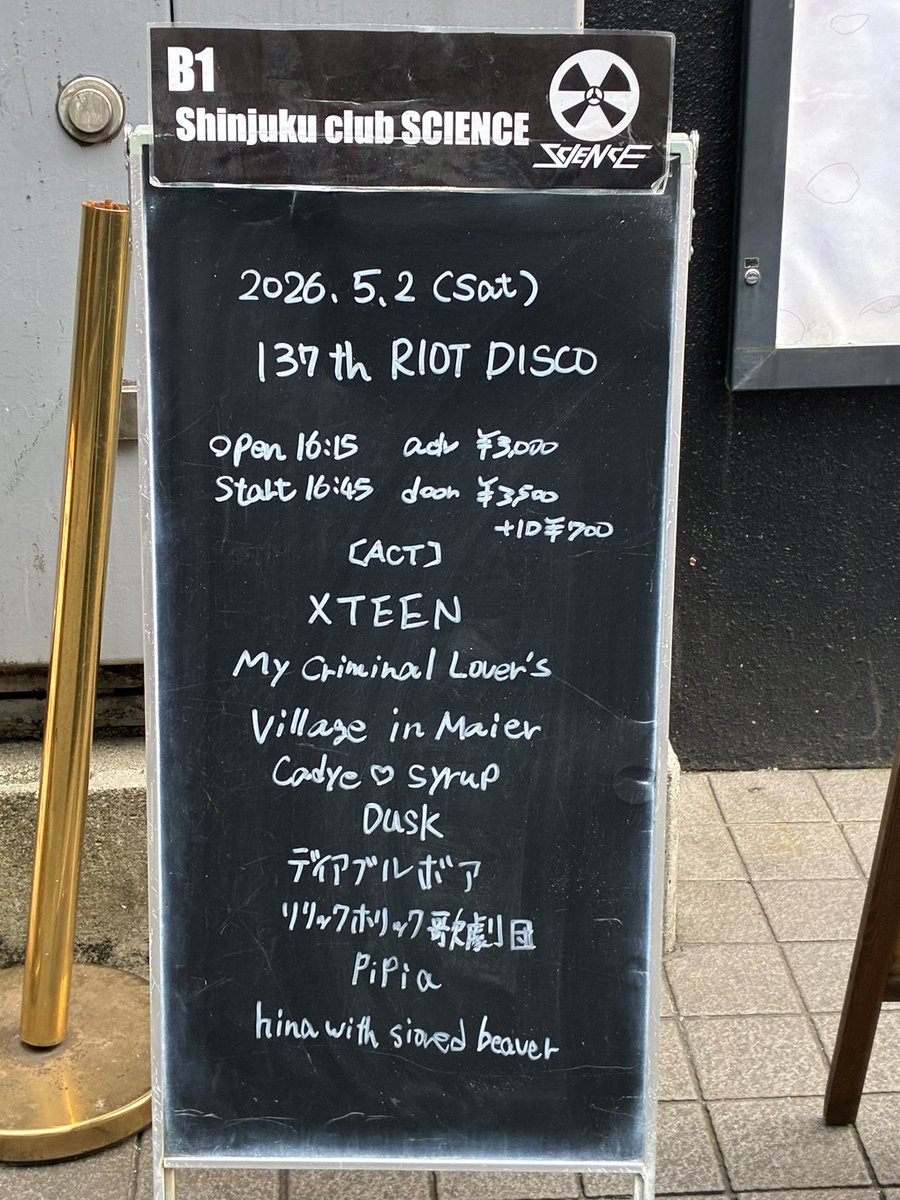 B1
Shinjuku club SCIENCE
SCIENCE
2026.5.2 (Sat)
137th RIOT DISCO
open 16:15 adv ¥3,000
Start 16:45 door ¥3,500
+1D¥700
[ACT]
XTEEN
My Criminal Lover's
Village in Maier
Cadye♡syrup
Dusk
ディアブルボア
リリックホリック歌劇団
PiPia
hina with sioved beaver